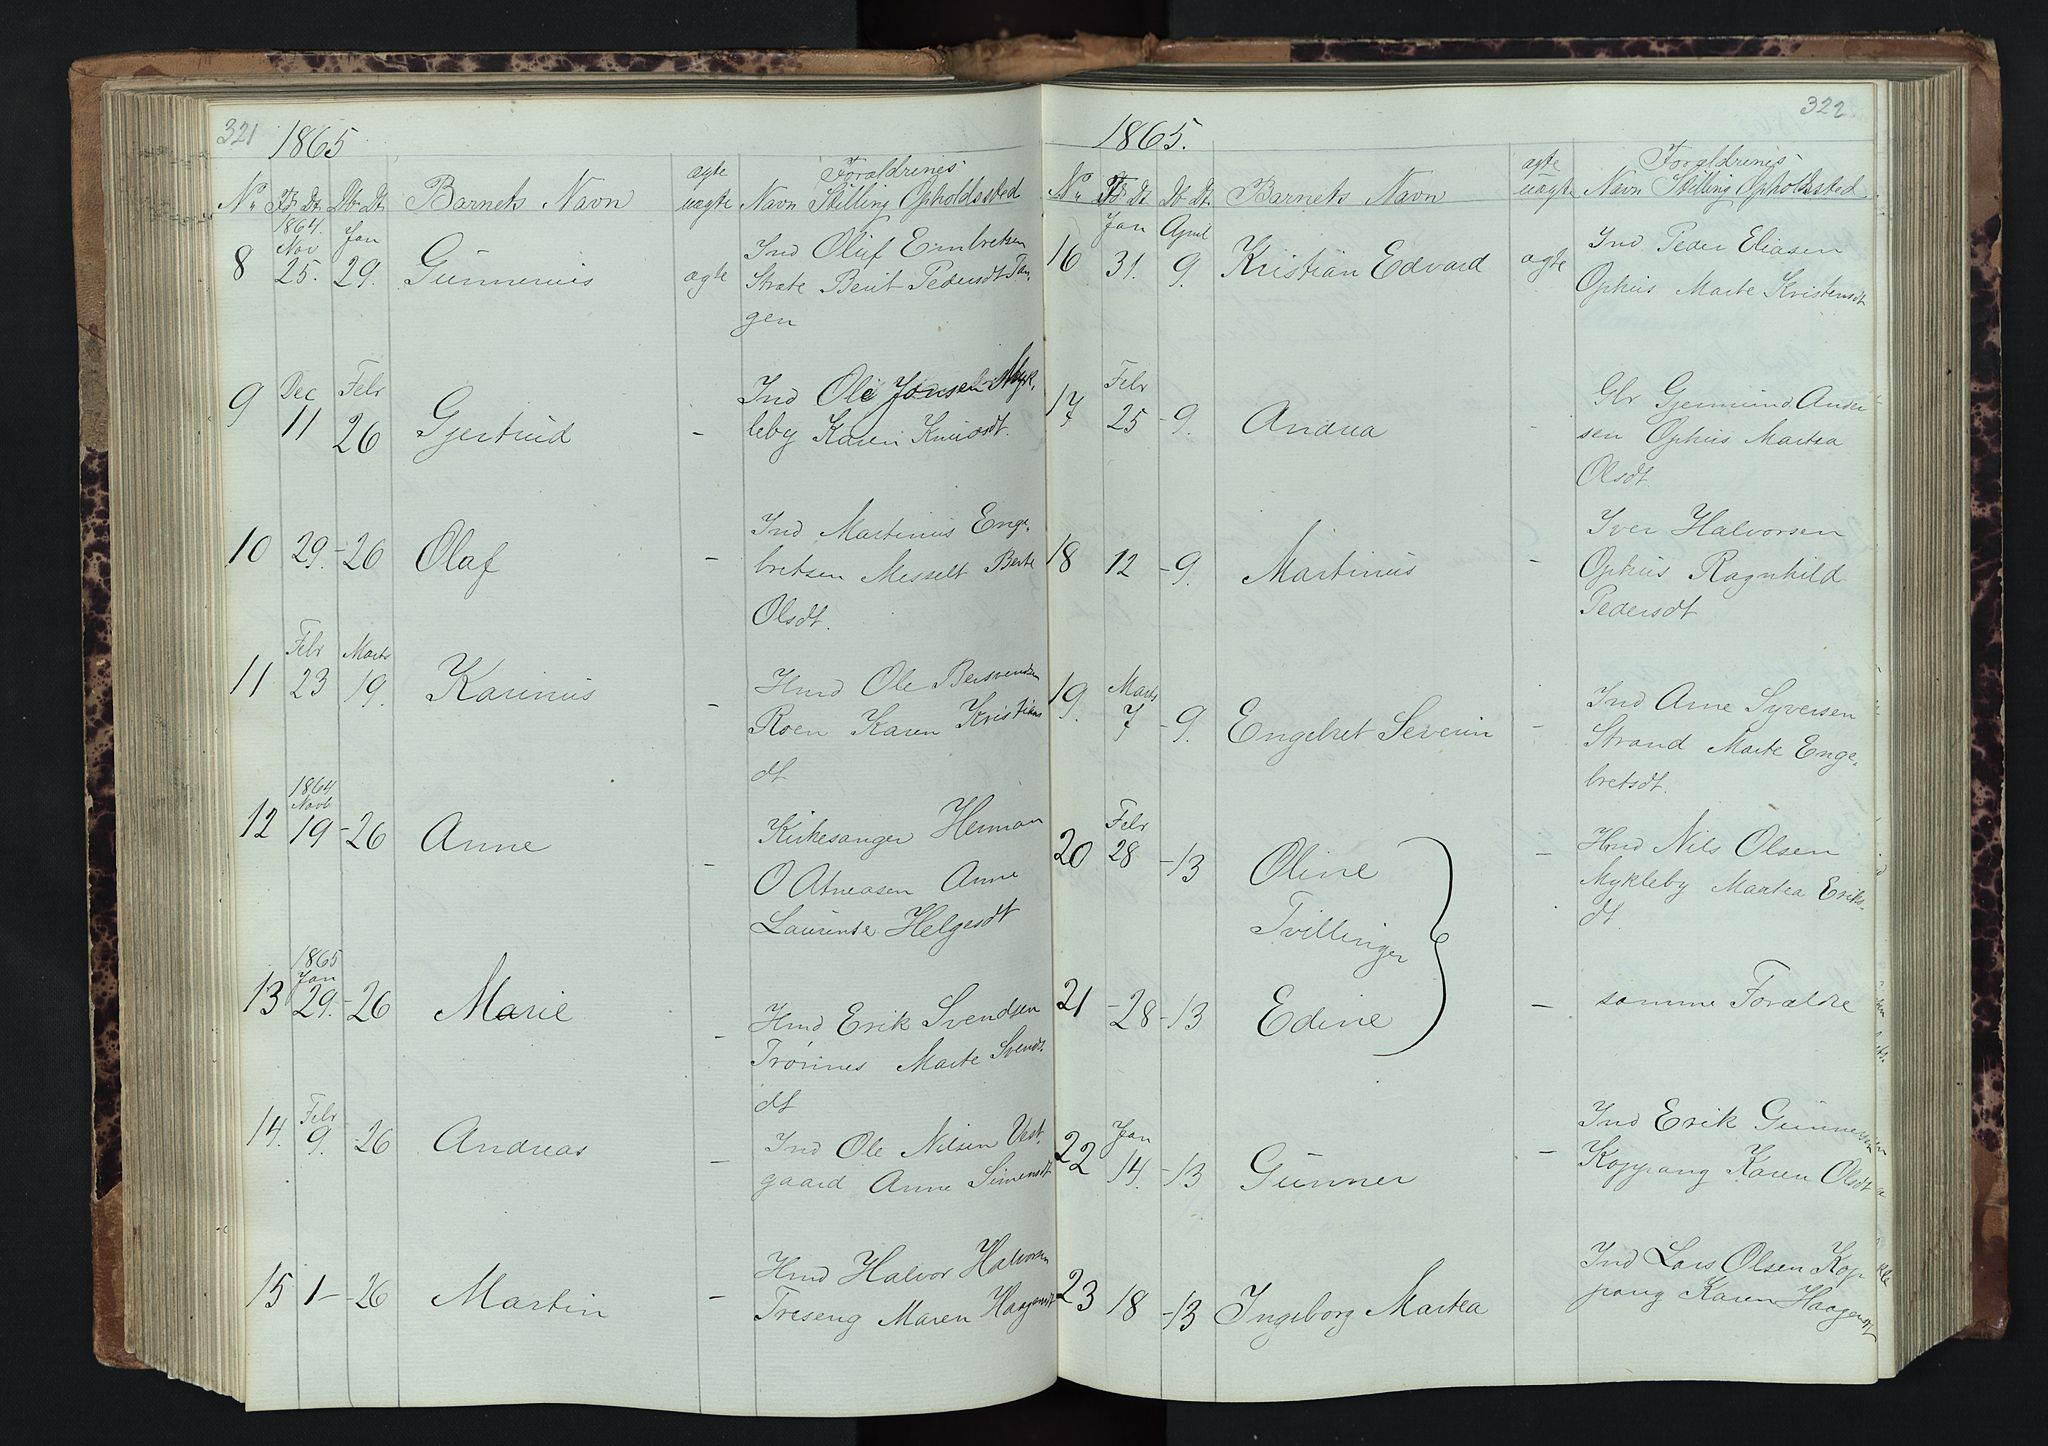 321
1865
Barnets Navn
ægte
uægte
Forældrenes
Navn Stilling Opholdssted
1864.
Nov
Jan
8 25. 29. Gunnerius ægte
Ind Oluf Embretsen
Berit Pedersdt Tan
gen
Dec Febr
9 11 26 Gjertrud -
Ind Ole Jonsen Myk,
leby Karen Knudsdt.
10 29.- 26 Olaf -
Ind Martinius Enge,
bretsen Messelt Berte
Olsdt.
Febr Marts
11 23 19. Karinus -
Hmd Ole Bersvendsen
Roen Karen Kristians
dt
1864
Novb
12 19 -26 Anne -
Kirkesanger Herman
O Atneosen Anne
Laurense Helgesdt
1865
Jan
13 29.-26 Marie -
Hmd Erik Svendsen
Trønnes Marte Svends
dt
Febr
14. 9. -26 Andreas -
Ind Ole Nilsen Vest,
gaard Anne Simensdt
15 1 - -26 Martin -
Hmd Halvor Halvorsen
Treseng Maren Haagensdt
322
1865.
Barnets Navn
ægte
uægte
Forældrenes
Navn Stilling Opholdssted
Jan April
16 31. 9. Kristian Edvard ægte
Ind Peder Eliasen
Ophus Marte Kristensdt
Febr
17 25 -9. Andrea -
Gbr Gjermund Ander
sen Ophus Martea
Olsdt.
18 12 -9. Martinius -
Iver Halvorsen
Ophus Ragnhild
Pedersdt
Marts
19. 7 -9. Engebret Severin -
Ind Arne Syversen
Strand Marte Enge,
bretsdt.
Febr
20 28 -13 Oline -
Hmd Nils Olsen
Mykleby Martea Eriks,
dt.
Tvillinger
21 -28 -13 Edine -
samme Forældre
Jan
22 14. -13 Gunner -
Ind Erik Gunnersen
Koppang Karen Olsdt
23 18 -13 Ingeborg Martea
Ind Lars Olsen Kop
pang Karen Haagensdt